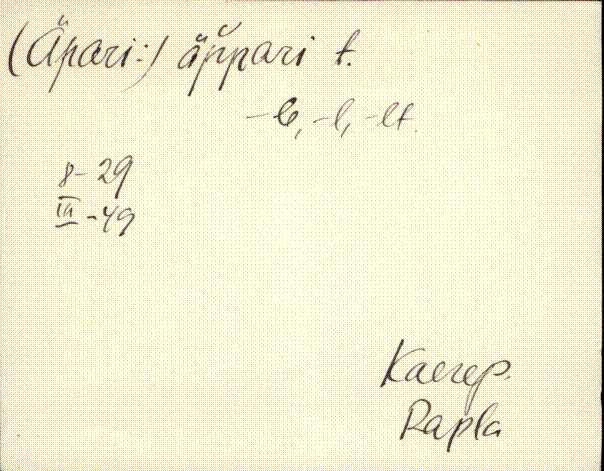 (Äpari:) äp̆pari t.
-le, -l, -lt.
8-29
III-49
Kaerep.
Rapla